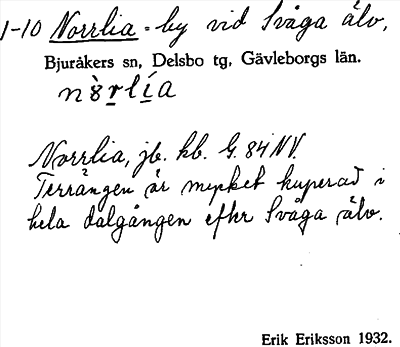 1-10 Norrlia - by vid Svåga älv,
Bjuråkers sn, Delsbo tg, Gävleborgs län.
Norrlia, jb. kb. G. 84 NV.
Terrängen är mycket kuperad i
hela dalgången efter Svåga älv.
Erik Eriksson 1932.